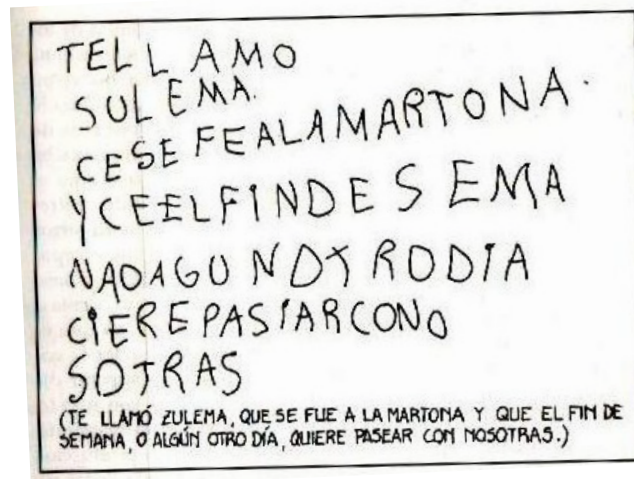 TELL AMO
SULEMA.
CESE FEALAMARTONA.
YCEELFINDESEMA
NADAGUNDTRODIA
CIEREPASIARCONO
SOTRAS
(TE LLAMÓ ZULEMA, QUE SE FUE A LA MARTONA Y QUE EL FIN DE
SEMANA, O ALGÚN OTRO DÍA, QUIERE PASEAR CON NOSOTRAS.)